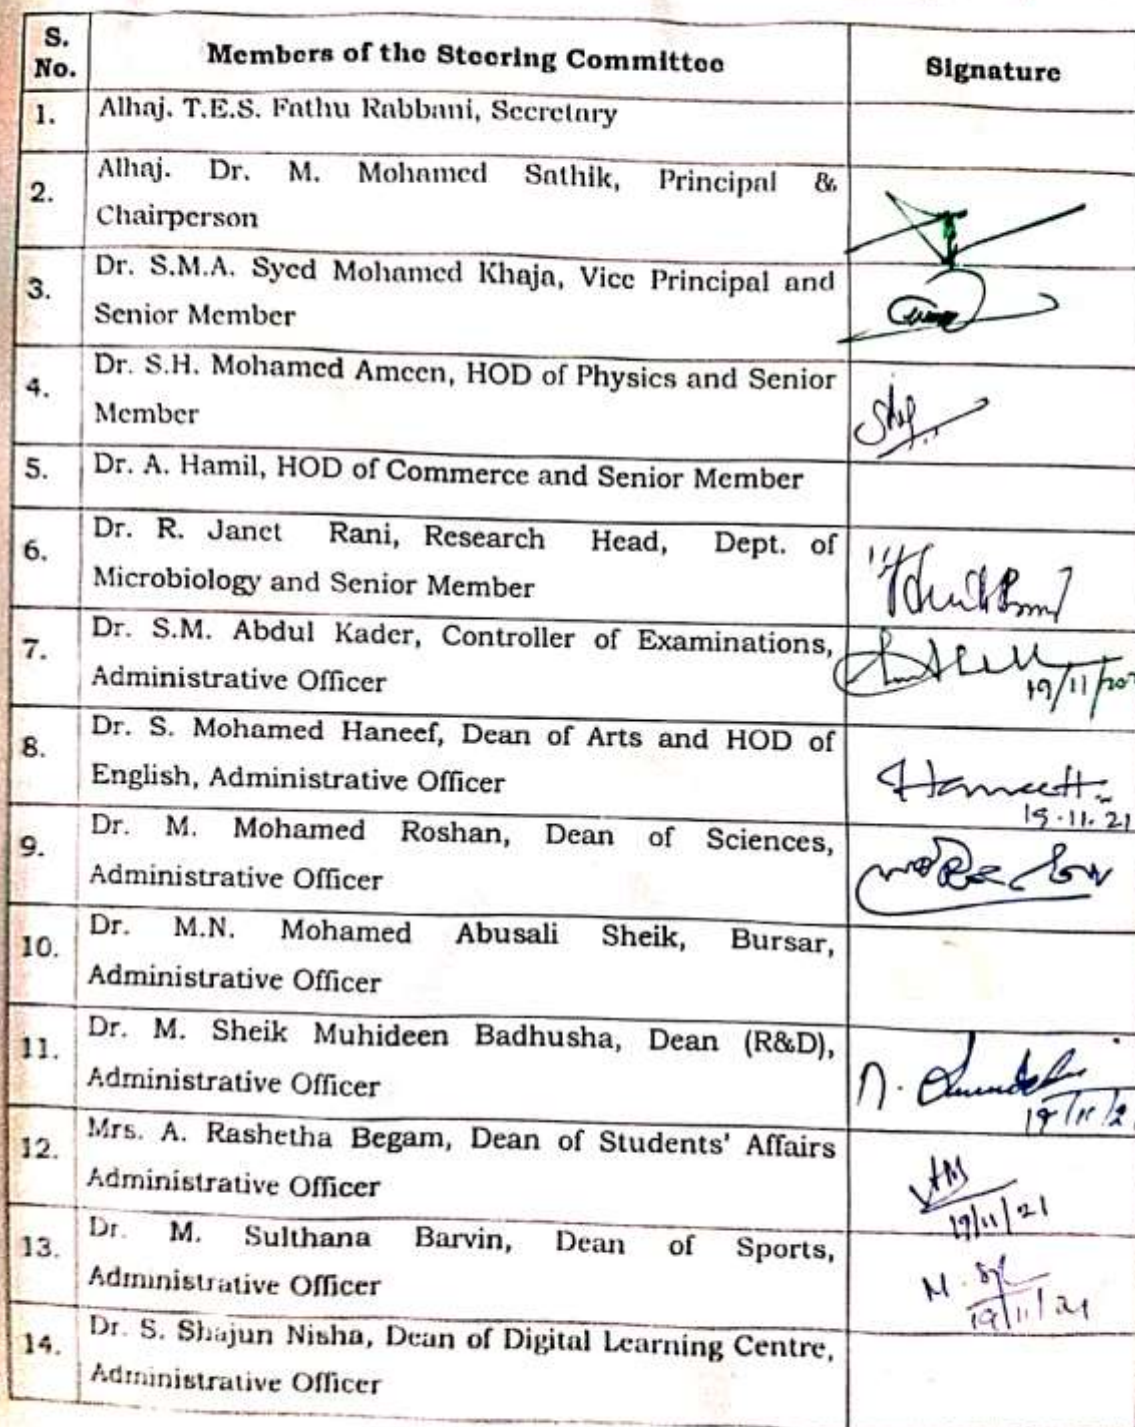 S. No. Members of the Steering Committee Signature
1. Alhaj. T.E.S. Fathu Rabbani, Secretary
2. Alhaj. Dr. M. Mohamed Sathik, Principal &
Chairperson
3. Dr. S.M.A. Syed Mohamed Khaja, Vice Principal and
Senior Member
4. Dr. S.H. Mohamed Ameen, HOD of Physics and Senior
Member
5. Dr. A. Hamil, HOD of Commerce and Senior Member
6. Dr. R. Janet Rani, Research Head, Dept. of
Microbiology and Senior Member
7. Dr. S.M. Abdul Kader, Controller of Examinations,
Administrative Officer
19/11/202
8. Dr. S. Mohamed Haneef, Dean of Arts and HOD of
English, Administrative Officer
19.11.21
9. Dr. M. Mohamed Roshan, Dean of Sciences,
Administrative Officer
10. Dr. M.N. Mohamed Abusali Sheik, Bursar,
Administrative Officer
11. Dr. M. Sheik Muhideen Badhusha, Dean (R&D),
Administrative Officer
19/11/2
12. Mrs. A. Rashetha Begam, Dean of Students' Affairs
Administrative Officer
19/11/21
13. Dr. M. Sulthana Barvin, Dean of Sports,
Administrative Officer
19/11/21
14. Dr. S. Shajun Nisha, Dean of Digital Learning Centre,
Administrative Officer